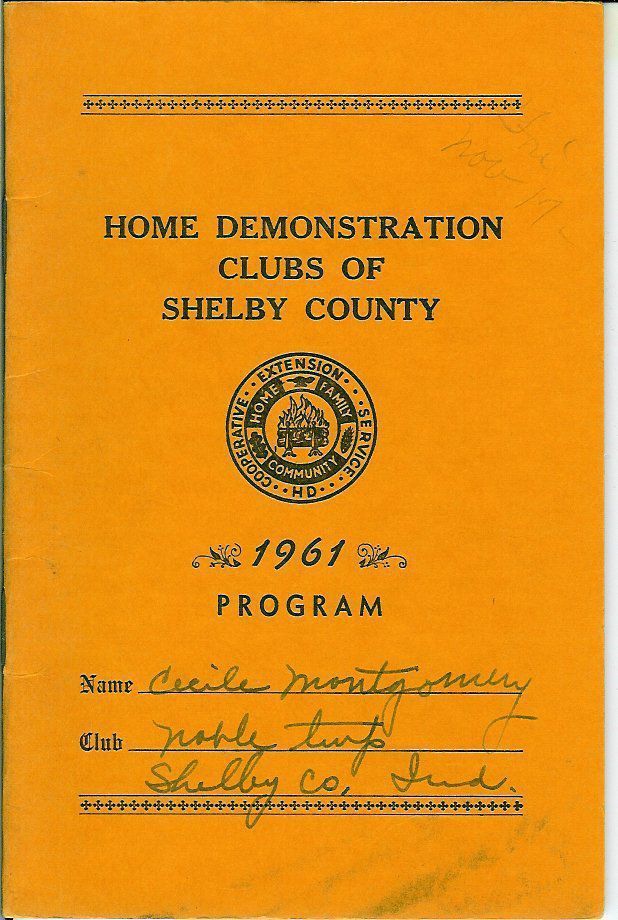 Fri
Nov 17
HOME DEMONSTRATION
CLUBS OF
SHELBY COUNTY
COOPERATIVE · EXTENSION · SERVICE
HOME FAMILY
COMMUNITY
HD
1961
PROGRAM
Name Cecile Montgomery
Club Noble twp
Shelby Co, Ind.